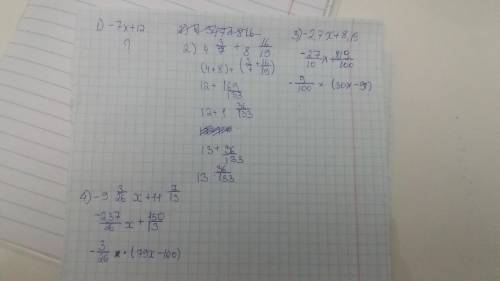 1) -7x+12
?
2) 4 3/7 + 8 16/19
(4+8)+(3/7+16/19)
12+ 169/133
12+1 36/133
13+ 36/133
13 36/133
3) -2,7x+8,19
-27/10 x+ 819/100
-9/100 × (30x-91)
4) -9 3/26 x+11 7/13
-237/26 x+ 150/13
-3/26 · (79x-100)